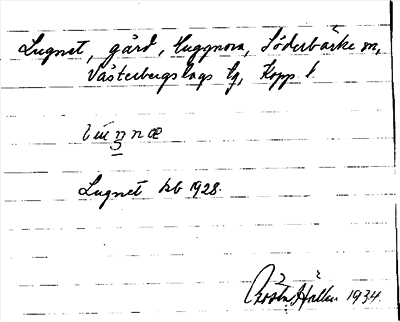 Lugnet, gård, Huggnora, Söderbärke sn,
Västerbergslags tg, Kopp l.
Lugnet kb 1928.
Gösta Hallm 1934.